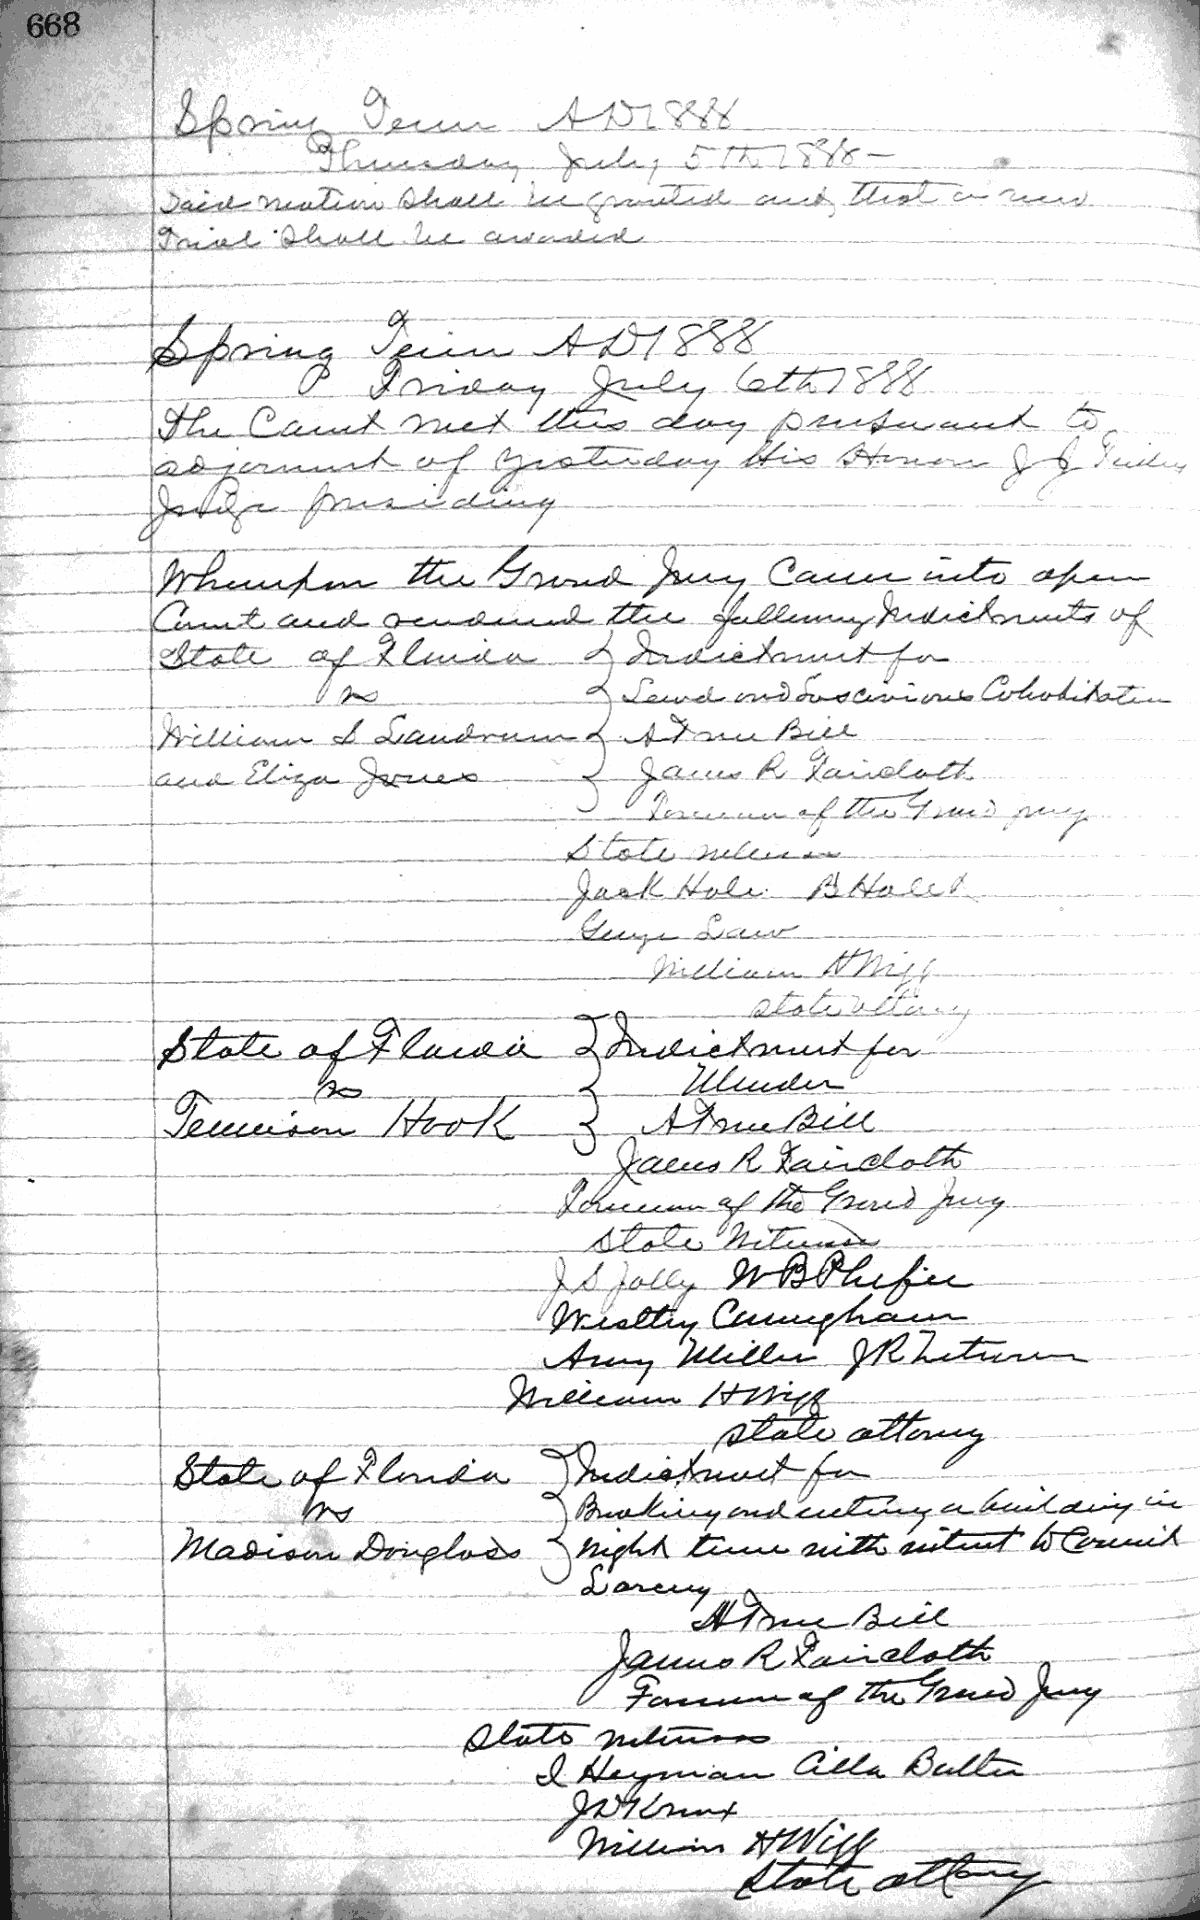 668
Spring Term AD1888
Thursday July 5th 1888-
Said motion shall be granted and that a new
Trial shall be awarded
Spring Term AD1888
Friday July 6th 1888
The Court met this day pursuant to
adjornment of yesterday His Honor J J
Judge presiding
Whereupon the Grand Jury Came into open
Court and rendered the following Indictments of
State of Florida } Indictment for
vs } Lewd and Lascivious Cohabitation
William S Landrum } A True Bill
and Eliza Jones } James R Faircloth
Foreman of the Grand jury
State witness
Jack Hale B Hale
George Law
William H Wigg
state attorny
State of Florida } Indictment for
vs } Murder
Tennison Hook } A True Bill
James R Faircloth
Foreman of the Grand Jury
State Witness
J S Jolly W B Phifer
Westley Cunningham
Amy Miller J R
William H Wigg
state attorny
State of Florida } Indictment for
vs } Breaking and entering a building in
Madison Douglass } night time with intent to Commit
Larceny
A True Bill
James R Faircloth
Forman of the Grand Jury
State witness
I Heyman Cilla Butler
J D Knox
William H Wigg
State attorny